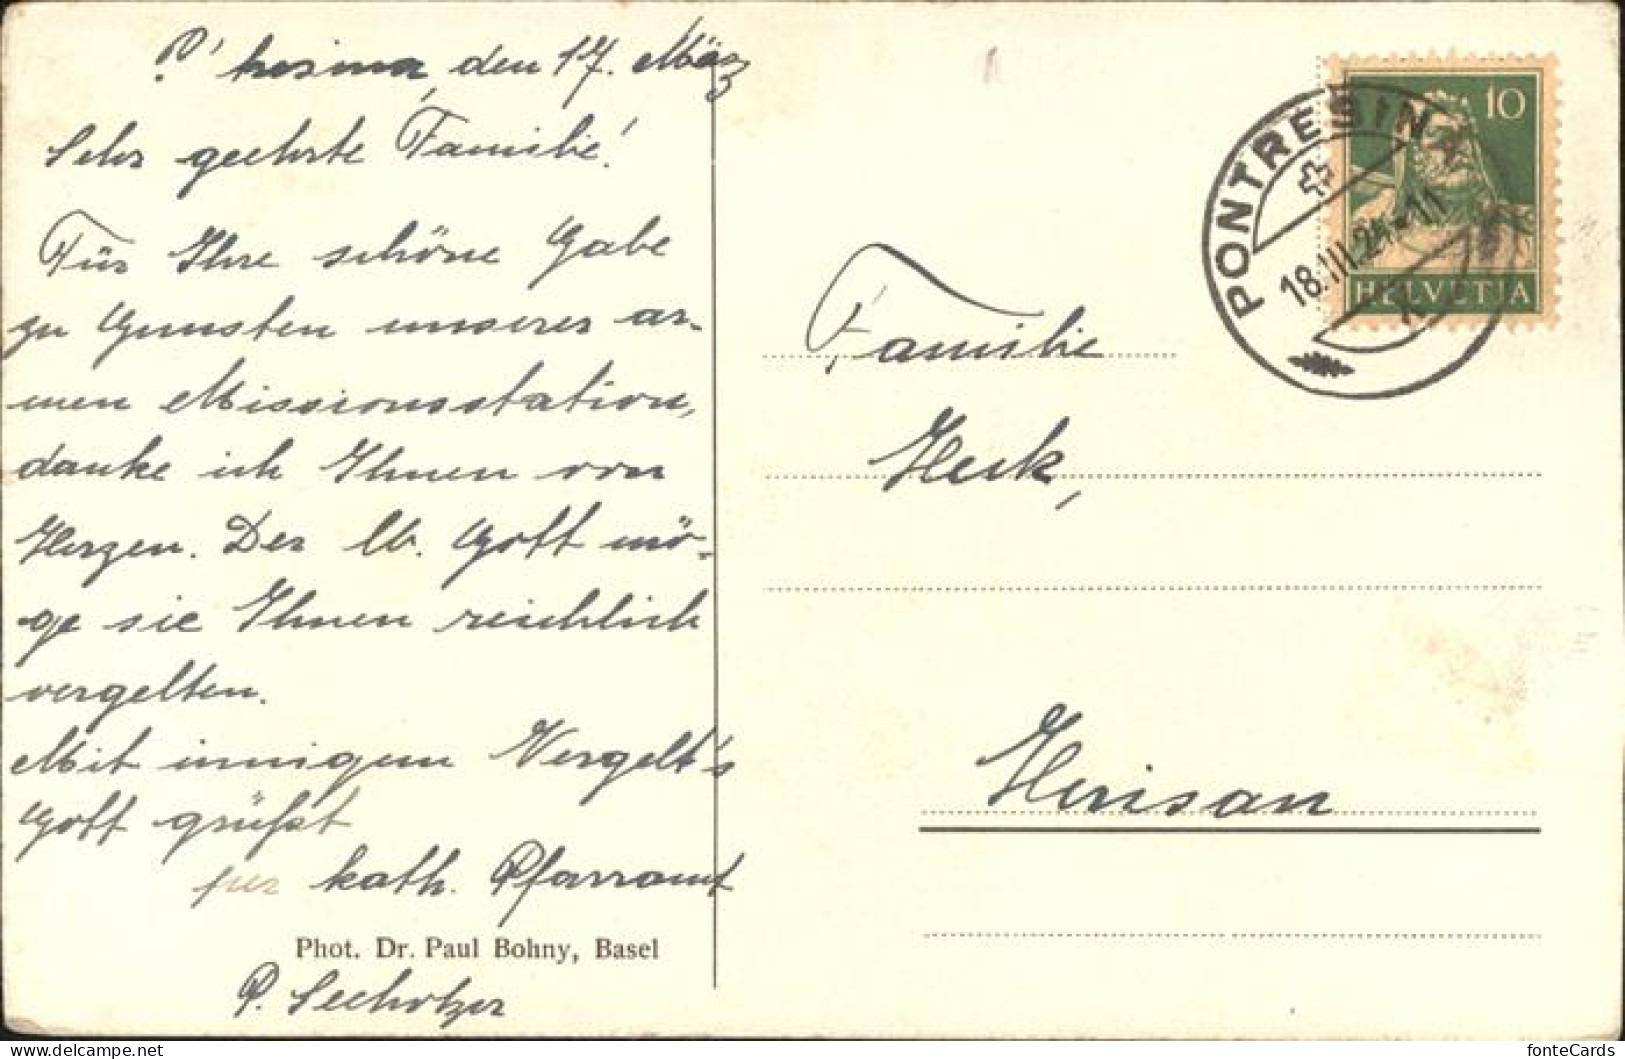 P'tresina, den 17. März
Sehr geehrte Familie!
Für Ihre schöne Gabe
zu Gunsten unserer ar-
men Missionsstation,
danke ich Ihnen von
Herzen. Der lb. Gott mö-
ge sie Ihnen reichlich
vergelten.
Mit innigem Vergelt's
Gott grüßt
per kath. Pfarramt
Phot. Dr. Paul Bohny, Basel
P.
10
HELVETIA
PONTRESINA
18.III.24-11
Familie
Heck,
Herisau
delcampe.net
fonteCards